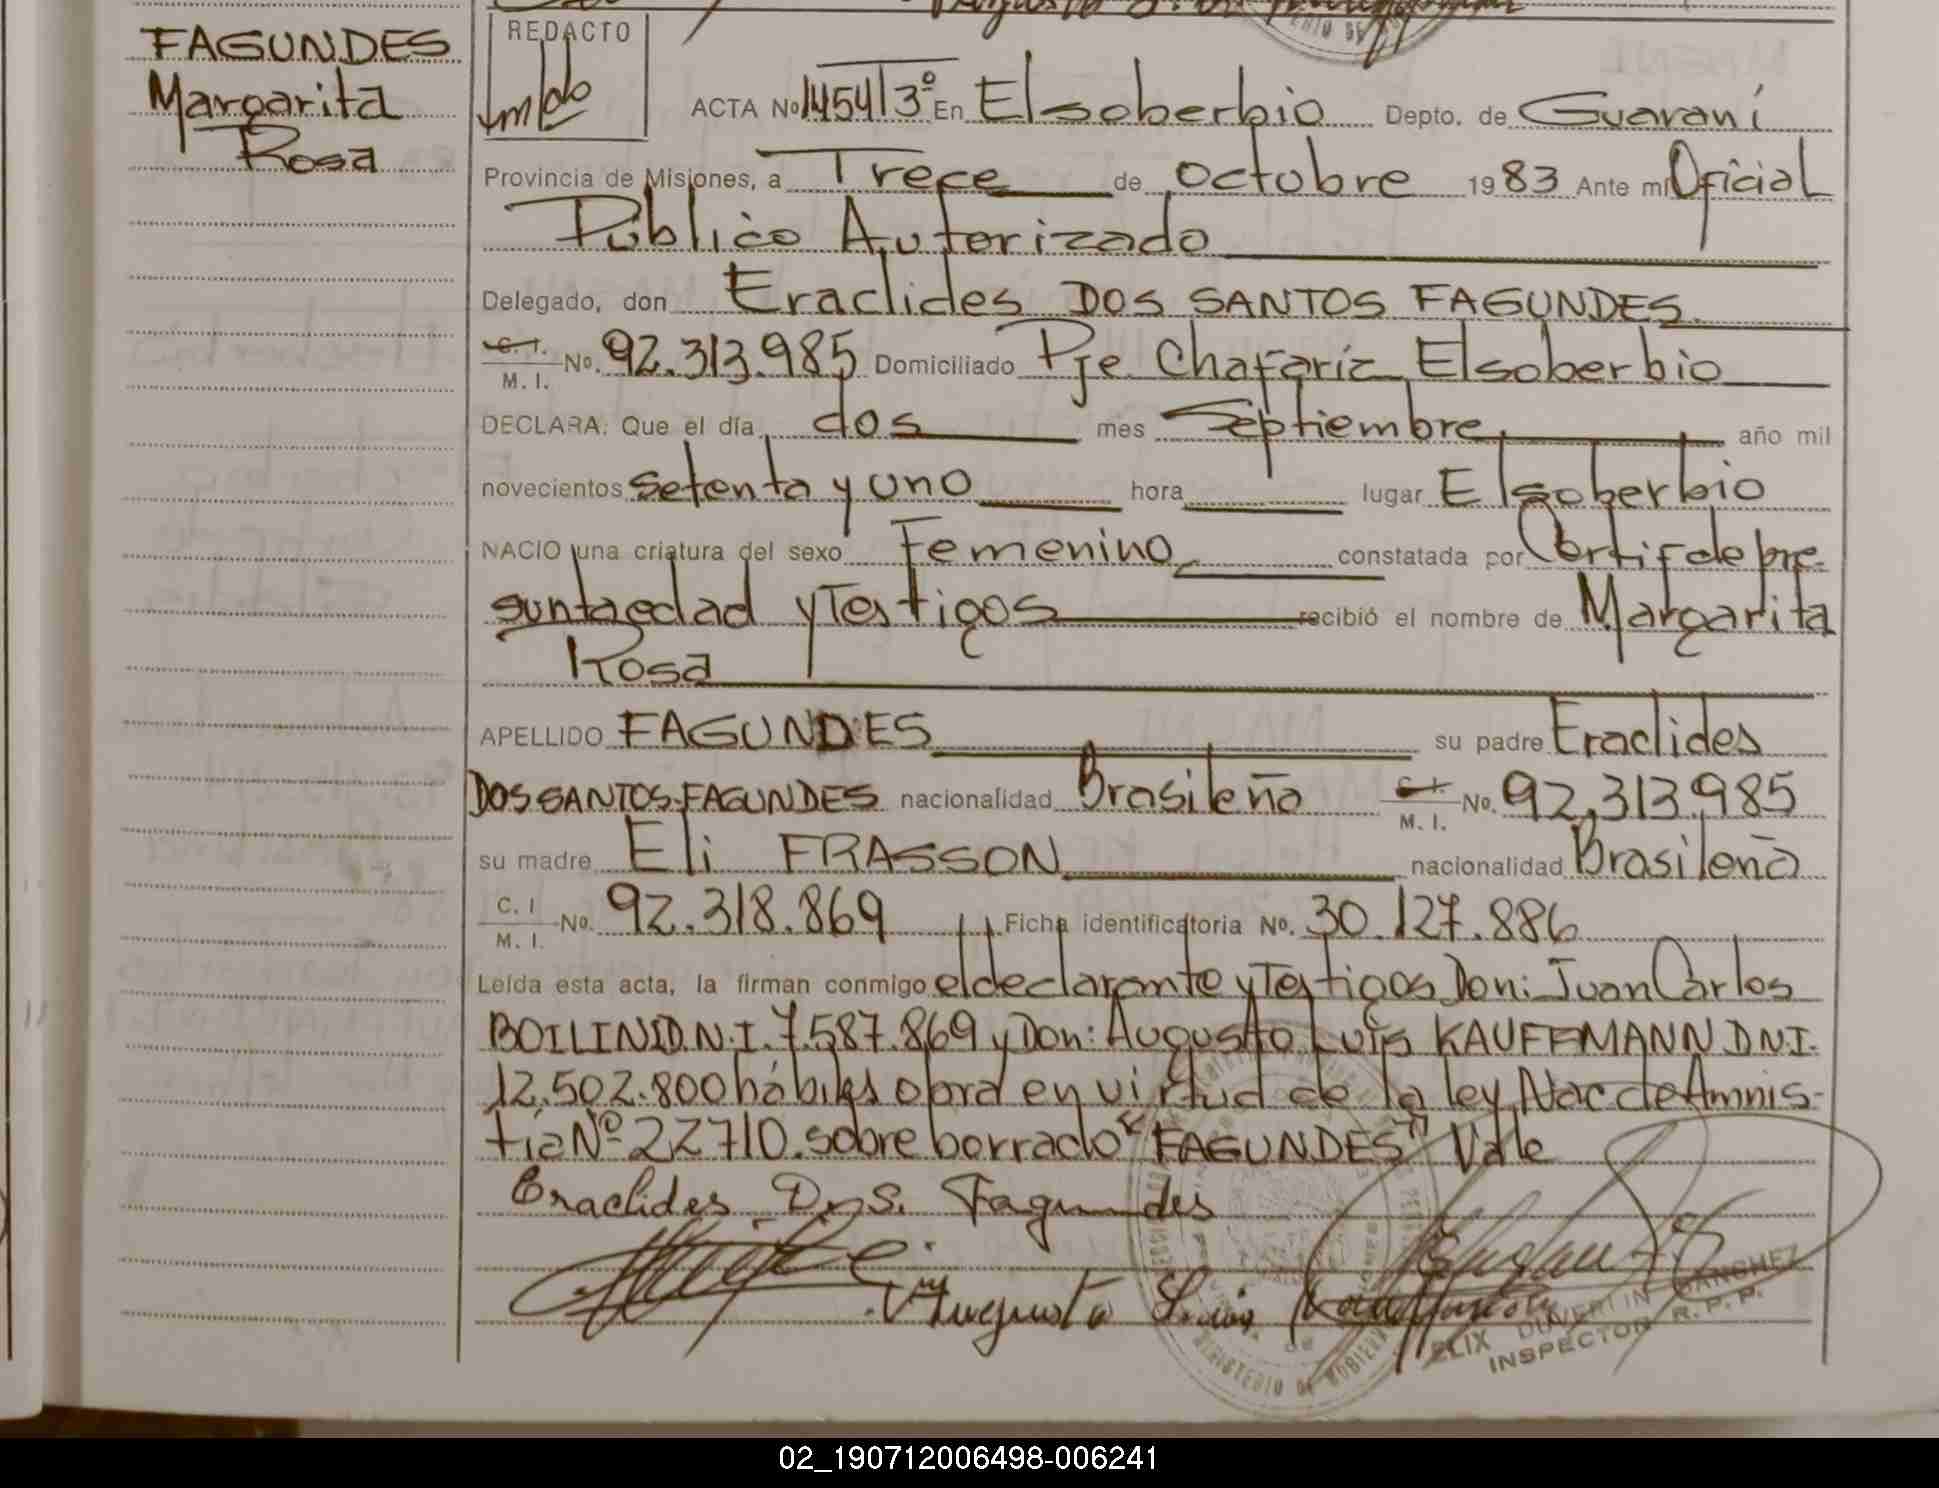 FAGUNDES
Margarita
Rosa
REDACTO
ACTA Nº 1454 T3º En Elsoberbio Depto. de Guaraní
Provincia de Misiones, a Trece de octubre 1983 Ante mí Oficial
Público Autorizado
Delegado, don Eraclides DOS SANTOS FAGUNDES
C. I. M. I. Nº. 92.313.985 Domiciliado Pje Chafariz Elsoberbio
DECLARA: Que el día dos mes Septiembre año mil
novecientos setenta y uno hora lugar Elsoberbio
NACIO una criatura del sexo Femenino constatada por Certif de pre-
sunta edad y Testigos recibió el nombre de Margarita
Rosa
APELLIDO FAGUNDES su padre Eraclides
DOS SANTOS FAGUNDES nacionalidad Brasileña C. I. M. I. No. 92,313.985
su madre Eli FRASSON nacionalidad Brasileña
C. I M. I. No. 92.318.869 Ficha identificatoria No. 30.127.886
Leída esta acta, la firman conmigo el declarante y Testigos Don: Juan Carlos
BOILINI D.N.I. 7.587.869 y Don: Augusto Luis KAUFFMANN D.N.I.
12.502.800 hábiles obra en virtud de la ley Nac de Amnis-
tía Nº 22710. sobre borrado "FAGUNDES" Vale
Eraclides D. S. Fagundes
Augusto Luis Kauffmann
SANCHEZ
INSPECTOR R. P. P.
MINISTERIO DE GOBIERNO
02_190712006498-006241